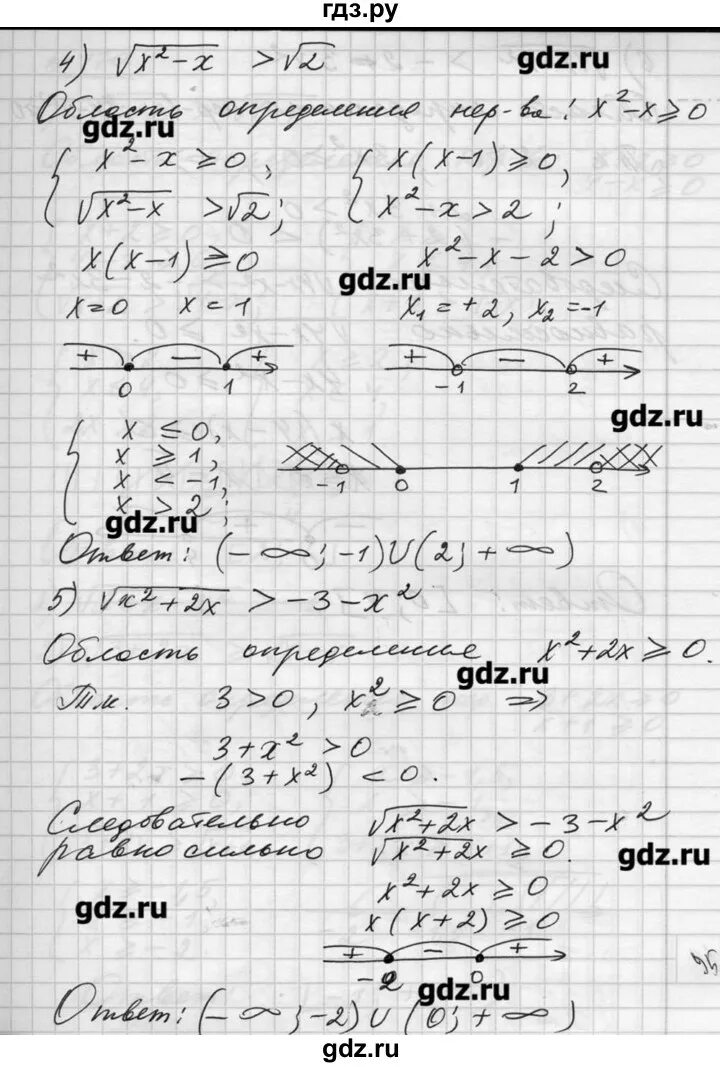 гдз.ру
4) √(x² - x) > √2
gdz.ru
Область определения нер-ва: x² - x ≥ 0
gdz.ru
{ x² - x ≥ 0, { x(x-1) ≥ 0,
√(x² - x) > √2; x² - x > 2;
x(x-1) ≥ 0 x² - x - 2 > 0
gdz.ru
x=0 x=1 x₁ = +2, x₂ = -1
+ − + + − +
0 1 -1 2
gdz.ru
{ x ≤ 0,
x ≥ 1,
x < -1,
x > 2;
-1 0 1 2
gdz.ru
Ответ: (-∞; -1) ∪ (2; +∞)
5) √(x² + 2x) > -3 - x²
Область определения x² + 2x ≥ 0.
gdz.ru
Т.к. 3 > 0, x² ≥ 0 ⇒
3 + x² > 0
-(3 + x²) < 0.
Следовательно √(x² + 2x) > -3 - x²
равносильно √(x² + 2x) ≥ 0.
gdz.ru
x² + 2x ≥ 0
gdz.ru
x(x+2) ≥ 0
+ − +
-2 0
96
gdz.ru
Ответ: (-∞; -2) ∪ (0; +∞)
gdz.ru